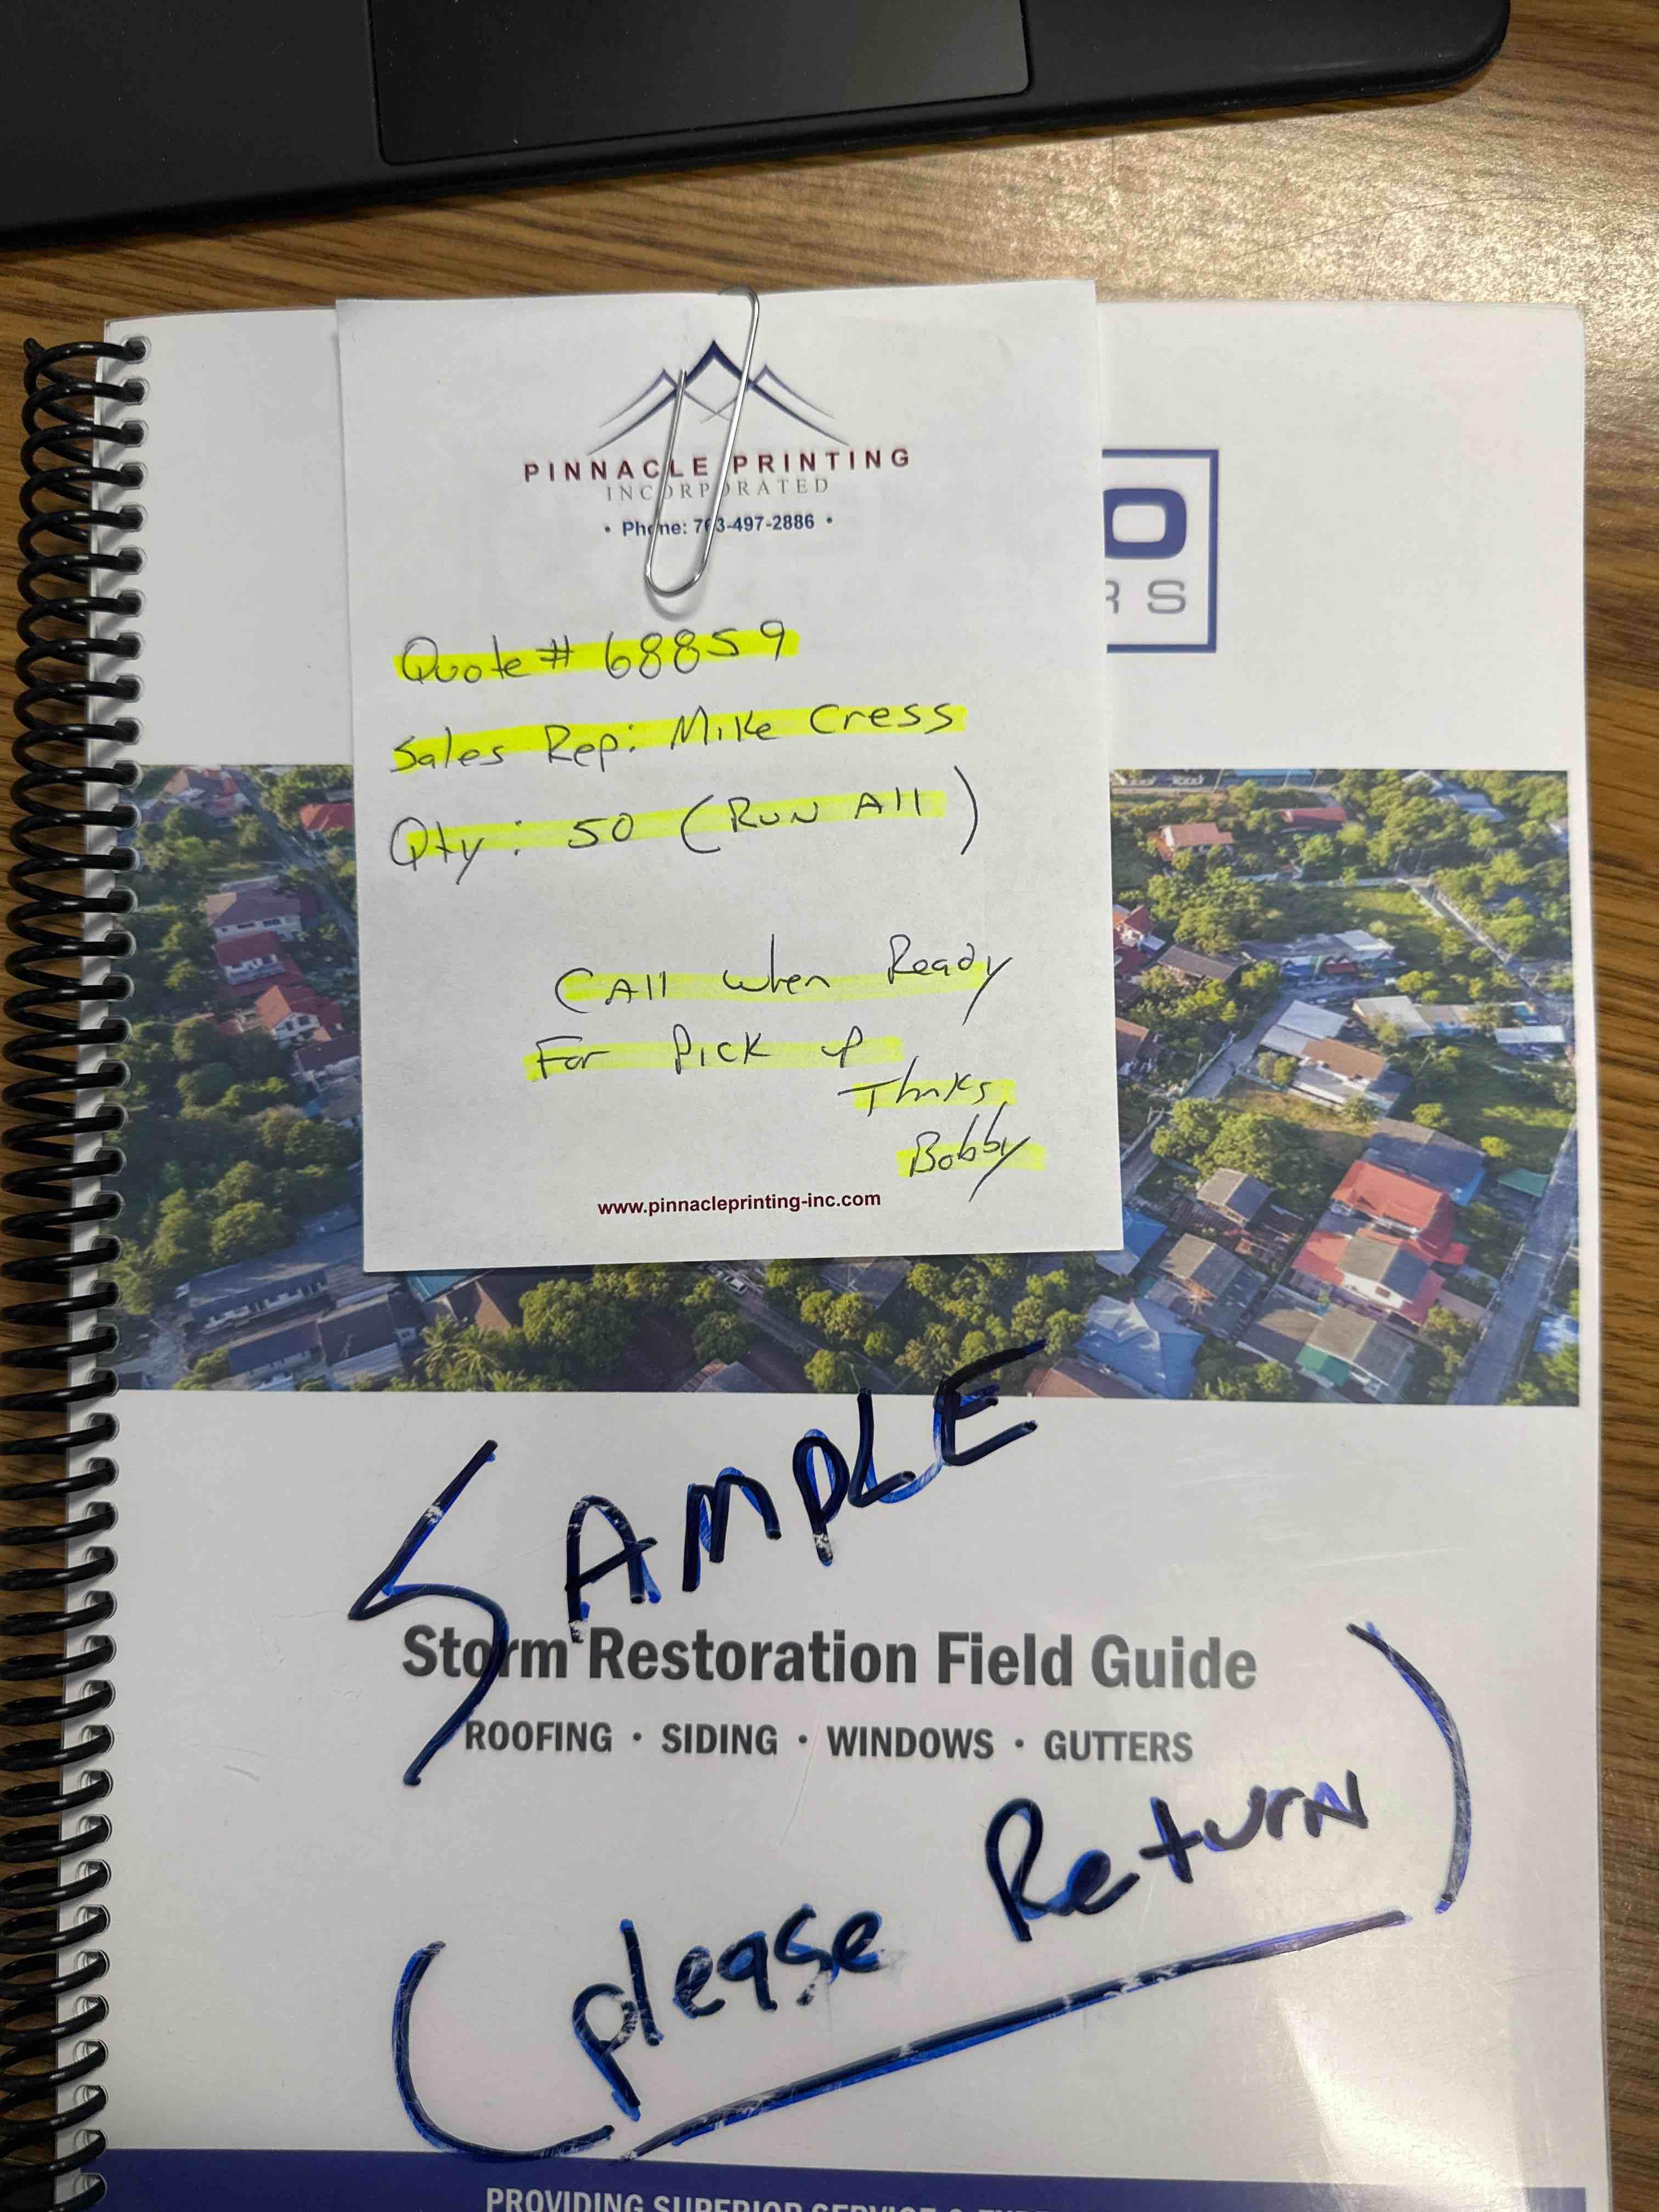 PINNACLE PRINTING
INCORPORATED
• Phone: 763-497-2886 •
O
RS
Quote # 68859
Sales Rep: Mike Cress
Qty: 50 (Run All)
Call when Ready
For Pick up
Thnks
Bobby
www.pinnacleprinting-inc.com
SAMPLE
Storm Restoration Field Guide
ROOFING • SIDING • WINDOWS • GUTTERS
(please Return)
PROVIDING SUPERIOR SERVICE &